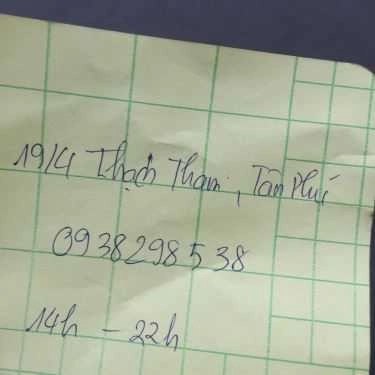 19/4 Thạch Tham, Tân Phú
0938298538
14h - 22h